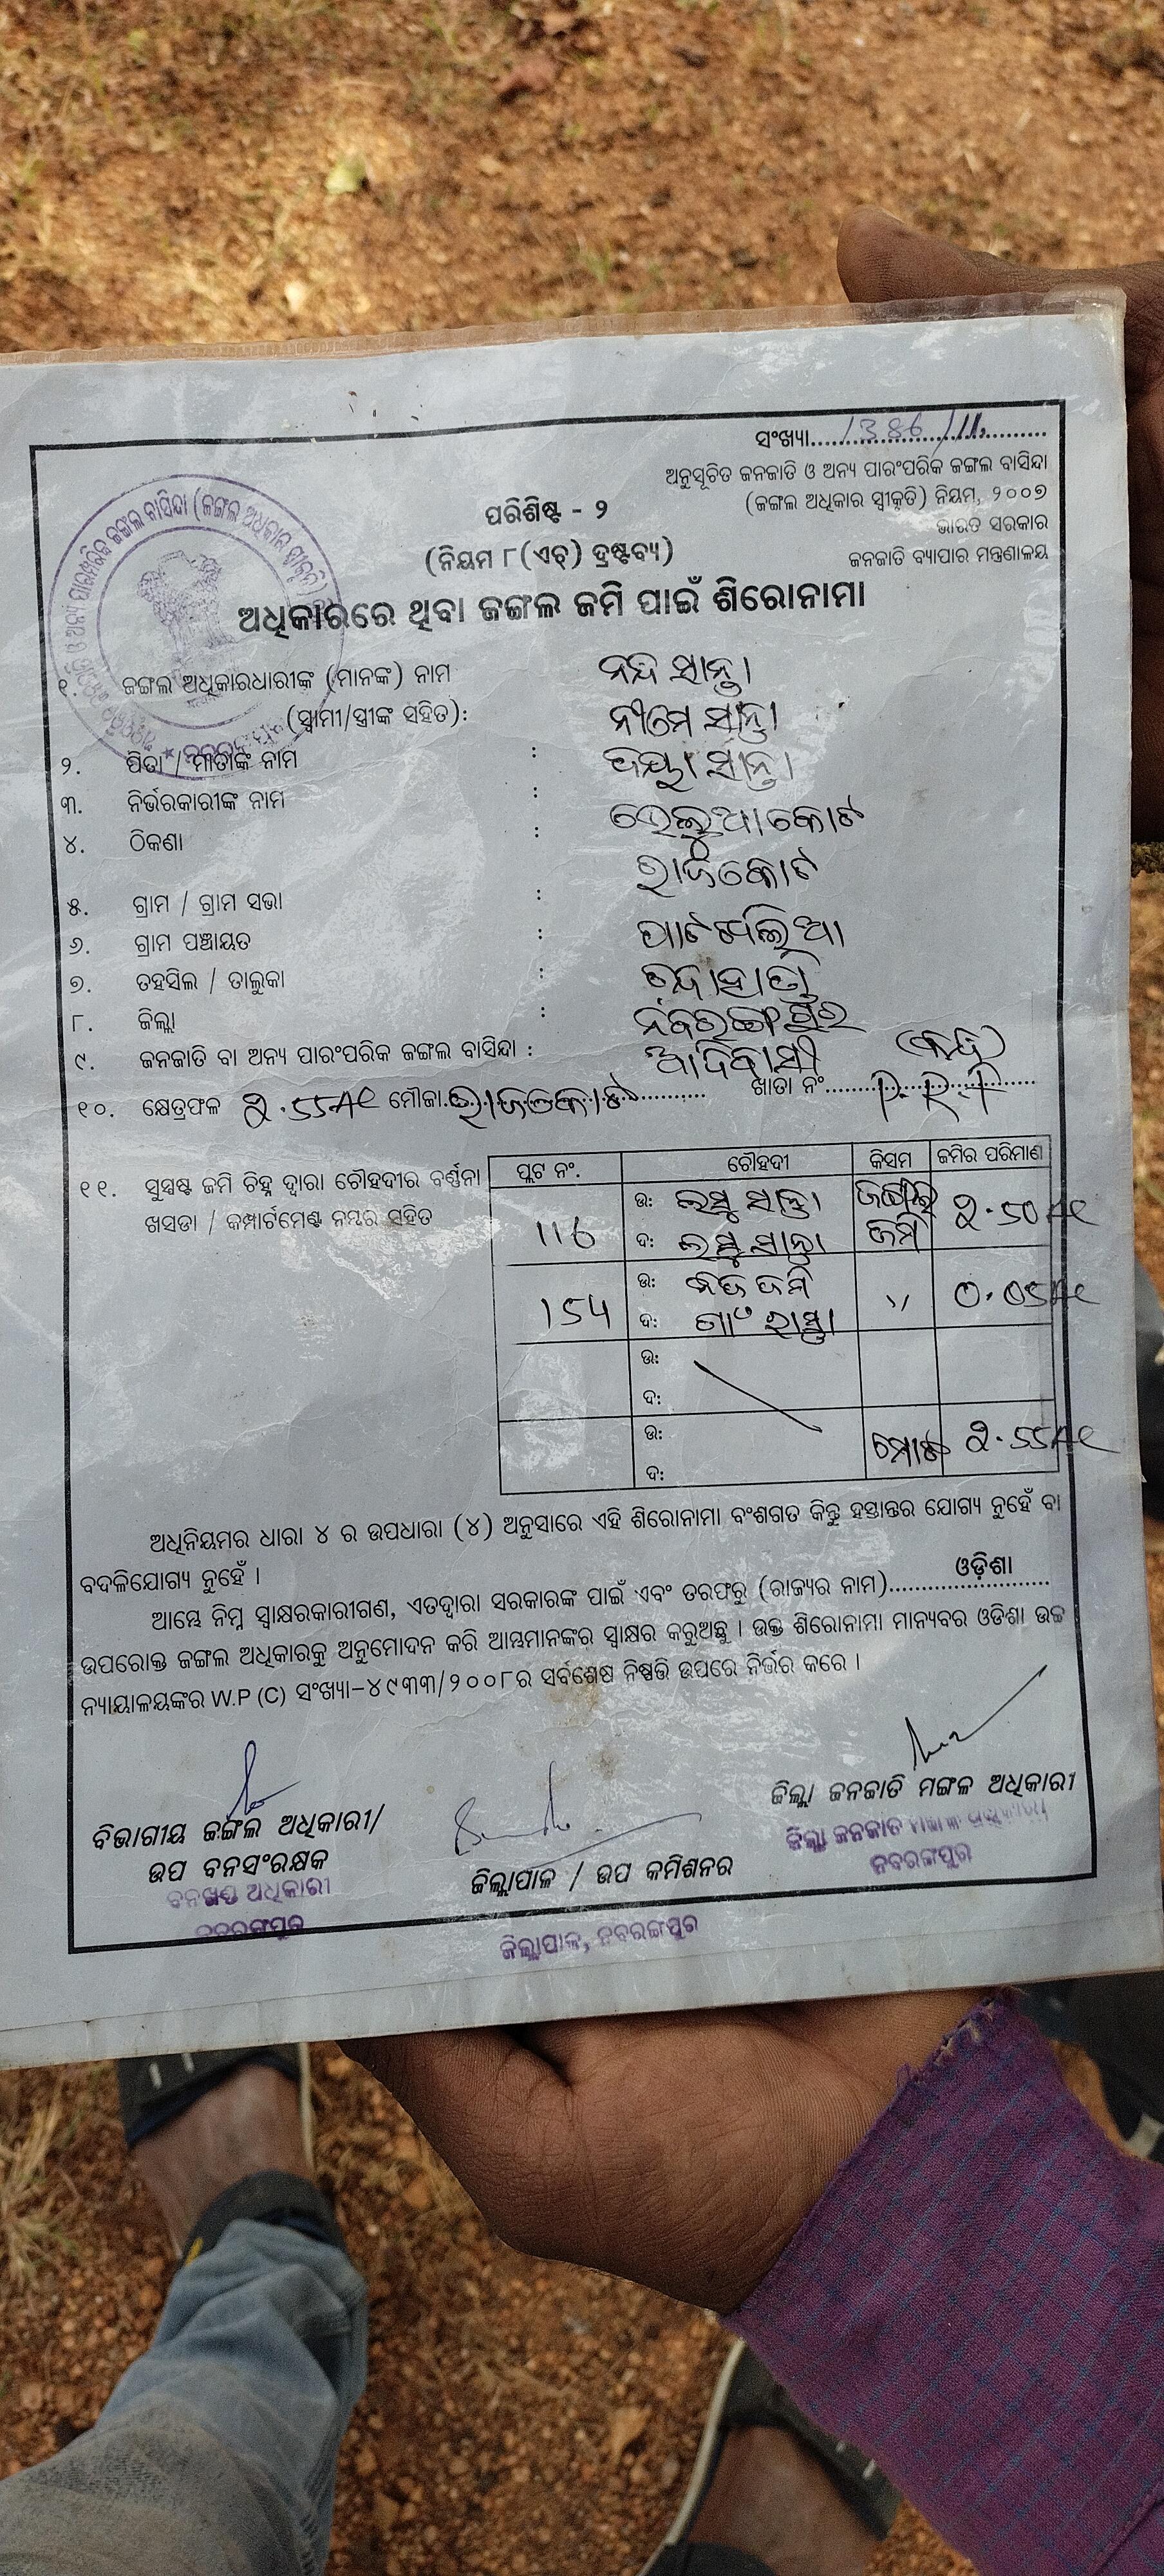 ସଂଖ୍ୟା 1386
ଅନୁସୂଚିତ ଜନଜାତି ଓ ଅନ୍ୟ ପାରଂପରିକ ଜଙ୍ଗଲ ବାସିନ୍ଦା
(ଜଙ୍ଗଲ ଅଧିକାର ସ୍ୱୀକୃତି) ନିୟମ, ୨୦୦୭
ଭାରତ ସରକାର
ଜନଜାତି ବ୍ୟାପାର ମନ୍ତ୍ରଣାଳୟ
ପରିଶିଷ୍ଟ - ୨
(ନିୟମ ୮(ଏଚ୍) ଦ୍ରଷ୍ଟବ୍ୟ)
ଅଧିକାରରେ ଥିବା ଜଙ୍ଗଲ ଜମି ପାଇଁ ଶିରୋନାମା
୧. ଜଙ୍ଗଲ ଅଧିକାରଧାରୀଙ୍କ (ମାନଙ୍କ) ନାମ ସାନ୍ତା
(ସ୍ୱାମୀ/ସ୍ତ୍ରୀଙ୍କ ସହିତ): ସାନ୍ତା
୨. ପିତା / ମାତାଙ୍କ ନାମ : ସାନ୍ତା
୩. ନିର୍ଭରକାରୀଙ୍କ ନାମ :
୪. ଠିକଣା :
୫. ଗ୍ରାମ / ଗ୍ରାମ ସଭା :
୬. ଗ୍ରାମ ପଞ୍ଚାୟତ :
୭. ତହସିଲ / ତାଲୁକା :
୮. ଜିଲ୍ଲା : ନବରଙ୍ଗପୁର
୯. ଜନଜାତି ବା ଅନ୍ୟ ପାରଂପରିକ ଜଙ୍ଗଲ ବାସିନ୍ଦା : ଆଦିବାସୀ
୧୦. କ୍ଷେତ୍ରଫଳ ୨.55Ac ମୌଜା ଖାତା ନଂ
୧୧. ସୁସ୍ପଷ୍ଟ ଜମି ଚିହ୍ନ ଦ୍ୱାରା ଚୌହଦୀର ବର୍ଣ୍ଣନା
ଖସଡା / କମ୍ପାର୍ଟମେଣ୍ଟ ନମ୍ବର ସହିତ
ପ୍ଲଟ ନଂ. ଚୌହଦୀ କିସମ ଜମିର ପରିମାଣ
116 ଉ: ସାନ୍ତା ଜଙ୍ଗଲ ଜମି ୨.50Ac
ଦ: ସାନ୍ତା
154 ଉ: ନିଜ ଜମି " 0.05Ac
ଦ: ଗାଁ ରାସ୍ତା
ଉ:
ଦ:
ଉ: ମୋଟ ୨.55Ac
ଦ:
ଅଧିନିୟମର ଧାରା ୪ ର ଉପଧାରା (୪) ଅନୁସାରେ ଏହି ଶିରୋନାମା ବଂଶଗତ କିନ୍ତୁ ହସ୍ତାନ୍ତର ଯୋଗ୍ୟ ନୁହେଁ ବା
ବଦଳିଯୋଗ୍ୟ ନୁହେଁ ।
ଆମ୍ଭେ ନିମ୍ନ ସ୍ୱାକ୍ଷରକାରୀଗଣ, ଏତଦ୍ୱାରା ସରକାରଙ୍କ ପାଇଁ ଏବଂ ତରଫରୁ (ରାଜ୍ୟର ନାମ) ଓଡ଼ିଶା
ଉପରୋକ୍ତ ଜଙ୍ଗଲ ଅଧିକାରକୁ ଅନୁମୋଦନ କରି ଆମ୍ଭମାନଙ୍କର ସ୍ୱାକ୍ଷର କରୁଅଛୁ । ଉକ୍ତ ଶିରୋନାମା ମାନ୍ୟବର ଓଡିଶା ଉଚ୍ଚ
ନ୍ୟାୟାଳୟଙ୍କର W.P (C) ସଂଖ୍ୟା-୪୯୩୩/୨୦୦୮ର ସର୍ବଶେଷ ନିଷ୍ପତ୍ତି ଉପରେ ନିର୍ଭର କରେ ।
ବିଭାଗୀୟ ଜଙ୍ଗଲ ଅଧିକାରୀ/
ଉପ ବନସଂରକ୍ଷକ
ବନଖଣ୍ଡ ଅଧିକାରୀ
ନବରଙ୍ଗପୁର
ଜିଲ୍ଲାପାଳ / ଉପ କମିଶନର
ଜିଲ୍ଲାପାଳ, ନବରଙ୍ଗପୁର
ଜିଲ୍ଲା ଜନଜାତି ମଙ୍ଗଳ ଅଧିକାରୀ
ଜିଲ୍ଲା ଜନଜାତି ମଙ୍ଗଳ ଅଧିକାରୀ
ନବରଙ୍ଗପୁର